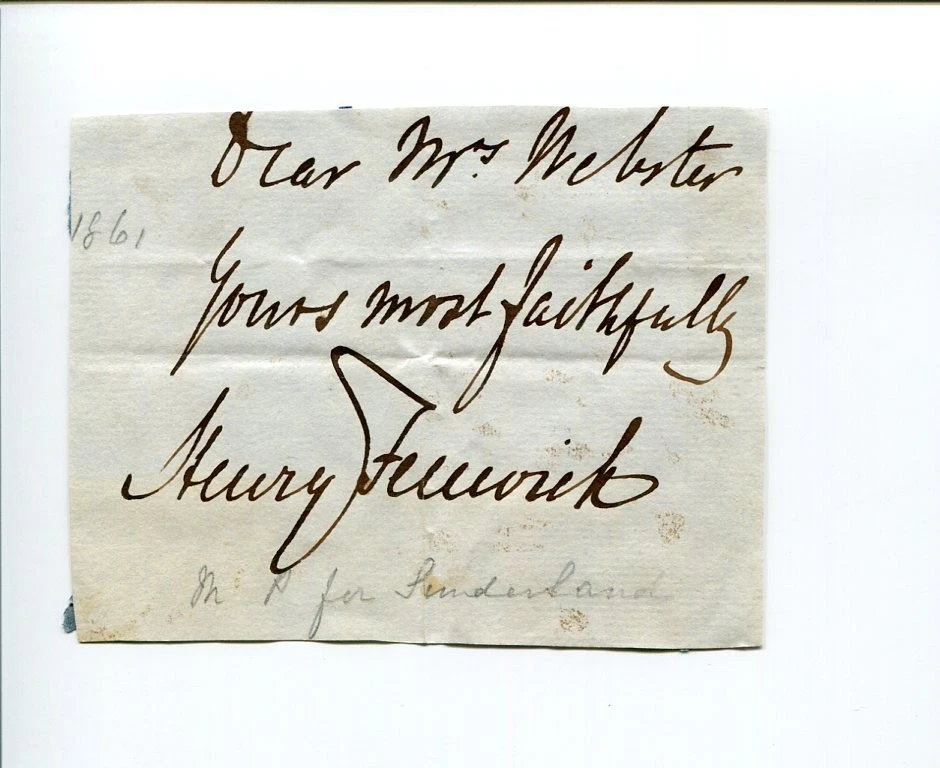 Dear Mrs. Webster
1861
Yours most faithfully
Henry Fenwick
M P for Sunderland